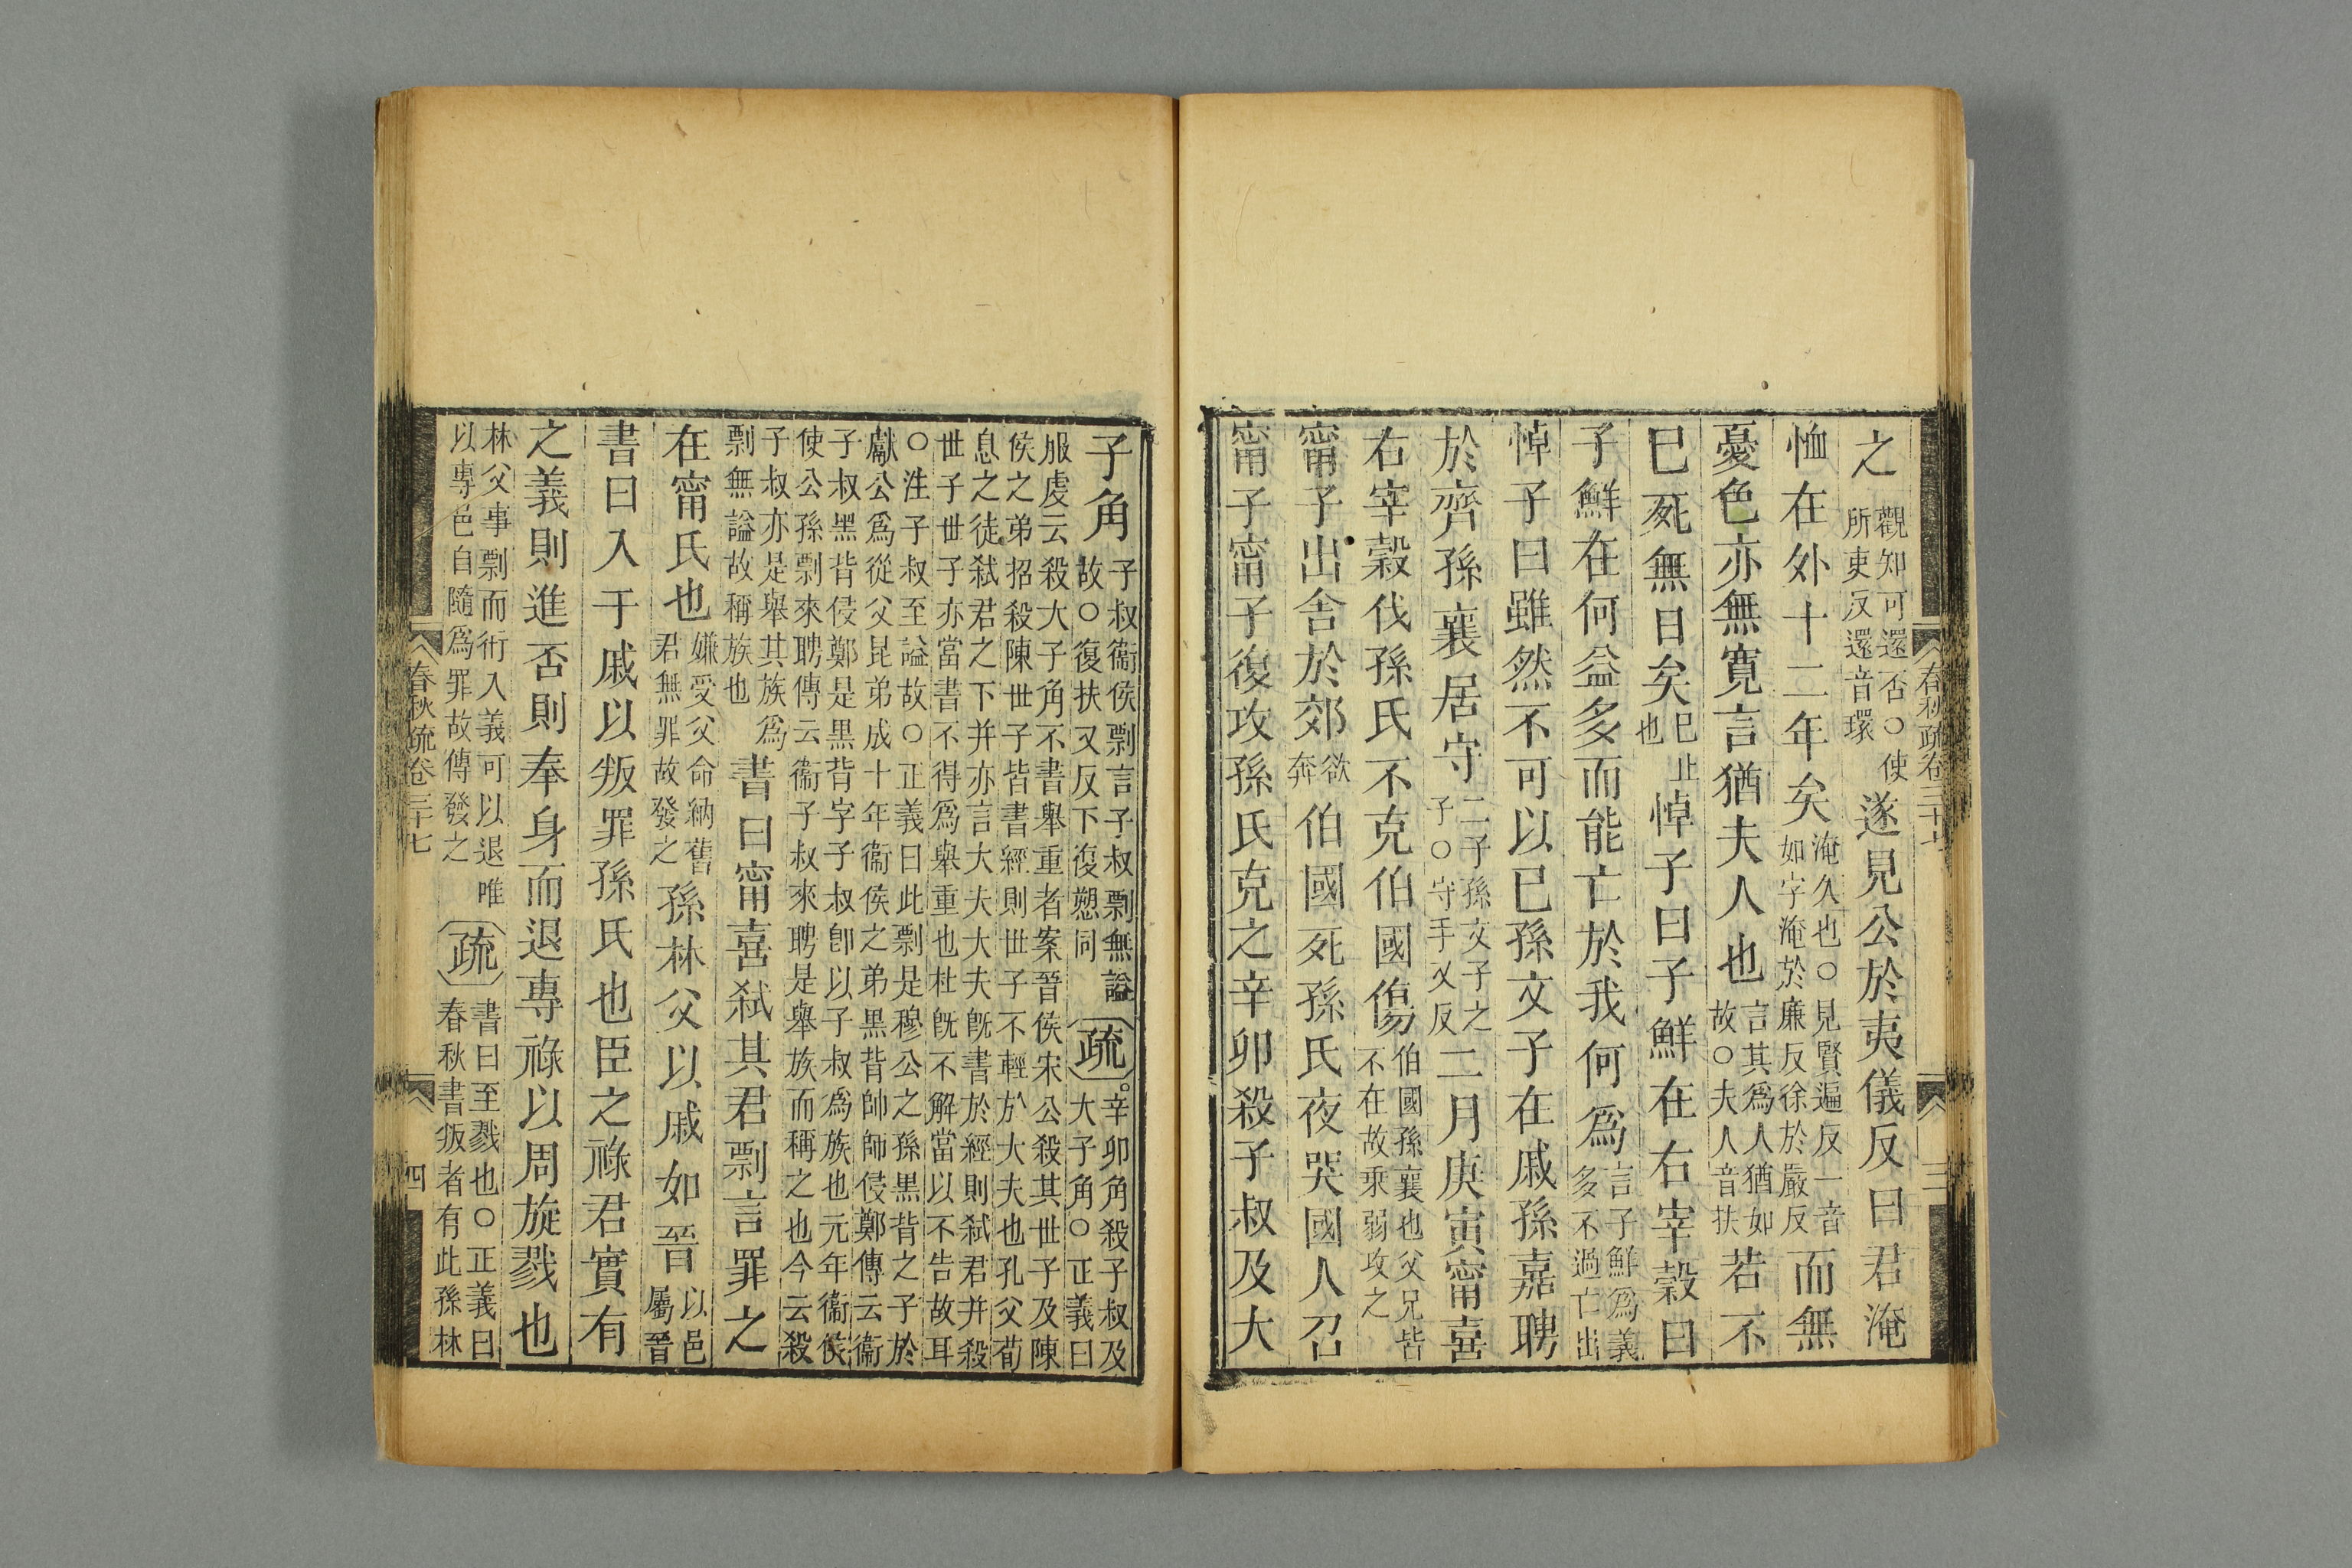 春秋疏卷三十七 三
之觀知可還否○使所吏反還音環遂見公於夷儀反曰君淹
恤在外十二年矣淹久也○見賢遍反一音如字淹於廉反徐於嚴反而無
憂色亦無寬言猶夫人也言其爲人猶如故○夫人音扶若不
已死無日矣已止也悼子曰子鮮在右宰穀曰
子鮮在何益多而能亡於我何爲言子鮮爲義多不過亡出
悼子曰雖然不可以已孫文子在戚孫嘉聘
於齊孫襄居守二子孫文子之子○守手又反二月庚寅甯喜
右宰穀伐孫氏不克伯國傷伯國孫襄也父兄皆不在故乘弱攻之
甯子出舍於郊欲奔伯國死孫氏夜哭國人召
甯子甯子復攻孫氏克之辛卯殺子叔及大
子角子叔衞侯剽言子叔剽無謚故○復扶又反下復愬同〔疏〕辛卯角殺子叔及大子角○正義曰
服虔云殺大子角不書舉重者案晉侯宋公殺其世子及陳
侯之弟招殺陳世子皆書經則世子不輕於大夫也孔父荀
息之徒弑君之下并亦言大夫大夫旣書於經則弑君并殺
世子世子亦當書不得爲舉重也杜旣不解當以不告故耳
○注子叔至謚故○正義曰此剽是穆公之孫黑背之子於
獻公爲從父昆弟成十年衞侯之弟黑背帥師侵鄭傳云衞
子叔黑背侵鄭是黑背字子叔卽以子叔爲族也元年衞侯
使公孫剽來聘傳云衞子叔來聘是舉族而稱之也今云殺
子叔亦是舉其族爲
剽無謚故稱族也書曰甯喜弑其君剽言罪之
在甯氏也嫌受父命納舊君無罪故發之孫林父以戚如晉以邑屬晉
書曰入于戚以叛罪孫氏也臣之祿君實有
之義則進否則奉身而退專祿以周旋戮也
林父事剽而衎入義可以退唯以專邑自隨爲罪故傳發之〔疏〕書曰至戮也○正義曰春秋書叛者有此孫林
春秋疏卷三十七 四